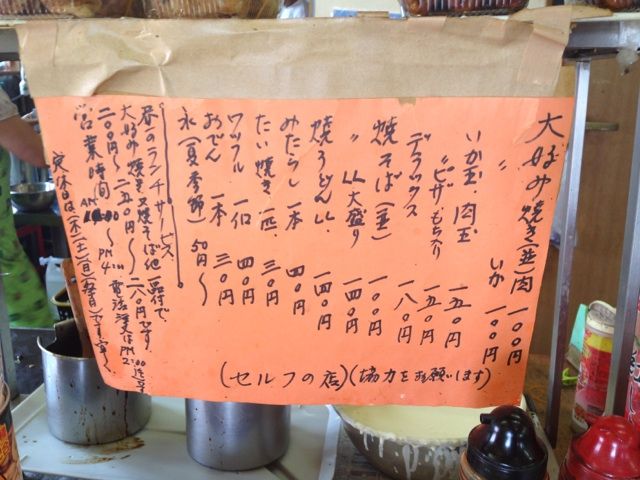 大好み焼き(並)肉 一〇〇円
〃 いか 一〇〇円
いか玉・肉玉 一五〇円
〃ピザ・もち入り 一五〇円
デラックス 一八〇円
焼そば(並) 一〇〇円
〃 〃大盛り 一四〇円
焼うどん〃 一四〇円
みたらし一本 四〇円
たい焼き一匹 三〇円
ワッフル一ロ 四〇円
おでん一本 三〇円
氷(夏季節) 五〇円〜
(セルフの店)(協力をお願いします)
昼一のランチサービス
大好み焼き又焼そば他一品付で、
二〇〇円〜二五〇円〜二八〇円です。
営業時間 AM 〜PM
定休日は(木)(土)(日)(祭日)です